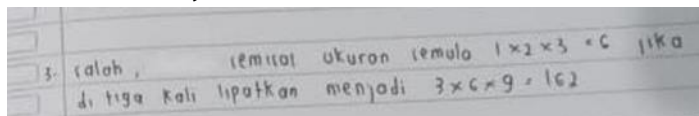 3. salah, semisal ukuran semula 1×2×3 = 6 jika
di tiga kali lipatkan menjadi 3×6×9 = 162